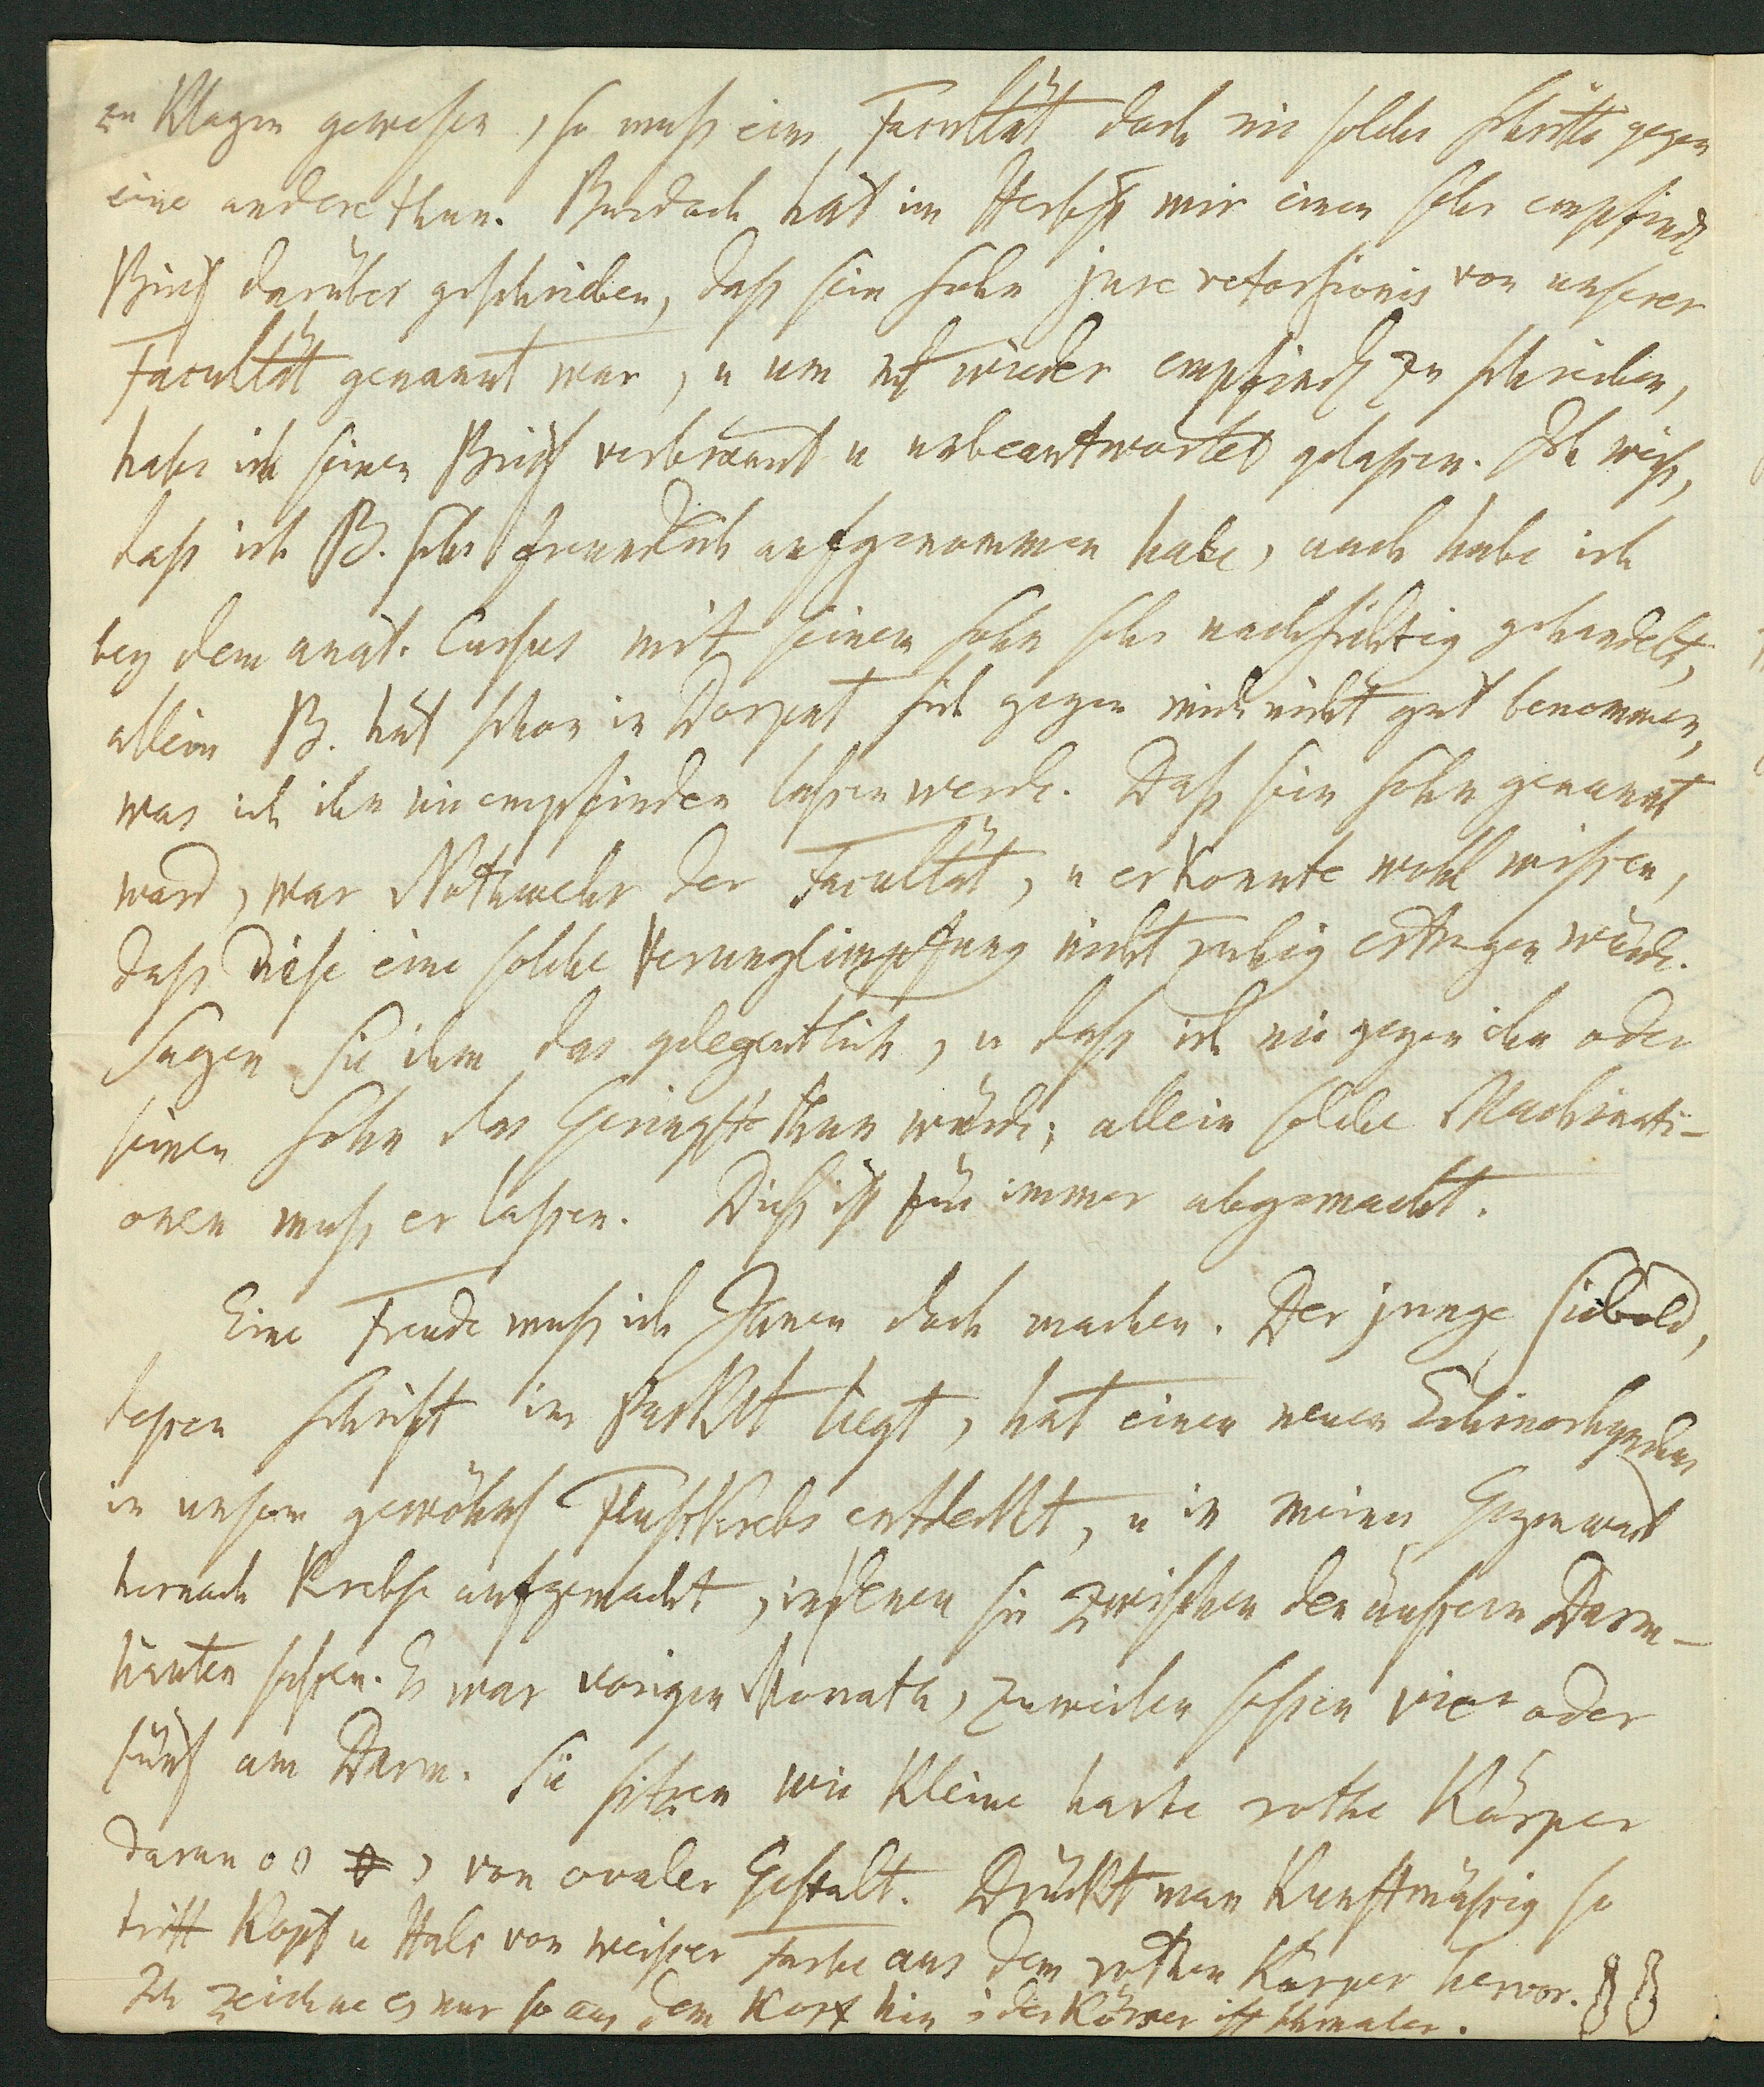 zu klagen gewesen, so muß eine Facultät doch nie solche Schritte gegen
eine andere thun. Burdach hat im Herbst mir einen sehr empfindl
Brief darüber geschrieben, daß sein Sohn jure retorsionis von unserer
Facultät genannt war, u um nicht wieder empfindl zu schreiben,
habe ich seinen Brief verbrannt u unbeantwortet gelassen. Ich weiß,
daß ich B. sehr freundlich aufgenommen habe, auch habe ich
bey dem anat. Cursus mit seinem Sohn sehr nachsichtig gehandelt,
allein B. hat schon in Dorpat sich gegen mich nicht gut benommen,
was ich ihn nie empfinden lassen werde. Daß sein Sohn genannt
ward, war Nothwehr der Facultät, u er konnte wohl wissen,
daß diese eine solche Verunglimpfung nicht ruhig ertragen würde.
Sagen Sie ihm das gelegentlich, u daß ich nie gegen ihn oder
seinen Sohn das Geringste thun würde; allein solche Machinati-
onen muß er lassen. Dieß ist für immer abgemacht.
Eine Freude muß ich Ihnen doch machen. Der junge Siebold,
dessen Schrift im Packet liegt, hat einen neuen Echinorhynchus
in unserm gewöhnl Flußkrebs entdeckt, u in meiner Gegenwart
hernach Krebse aufgemacht, in denen sie zwischen den äußern Darm-
häuten saßen. Es war vorigen Monath, zuweilen saßen vier oder
fünf am Darm. Sie sitzen wie kleine harte rothe Körper
daran, von ovaler Gestalt. Drückt man kunstmäßig so
tritt Kopf u Hals von weißer Farbe aus dem rothen Körper hervor.
Ich zeichne es nur so aus dem Kopf hin; der Körper ist schmaler.